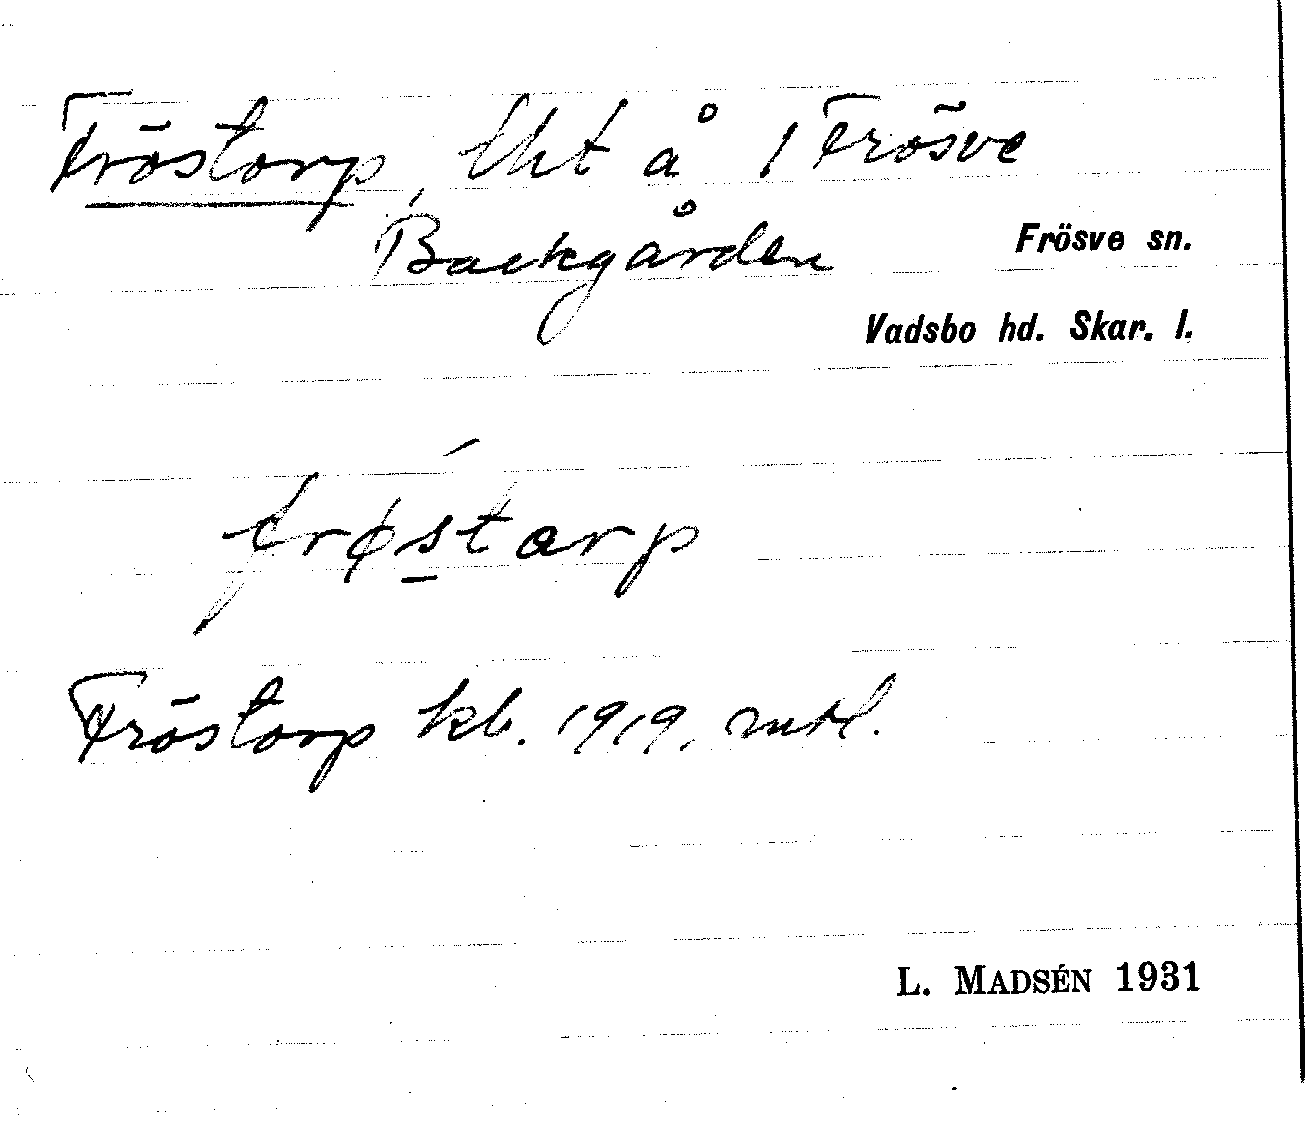 Fröstorp, lht å 1 Frösve
Backgården
Frösve sn.
Vadsbo hd. Skar. l.
frøstarp
Fröstorp kb. 1919, mtl.
L. MADSÉN 1931